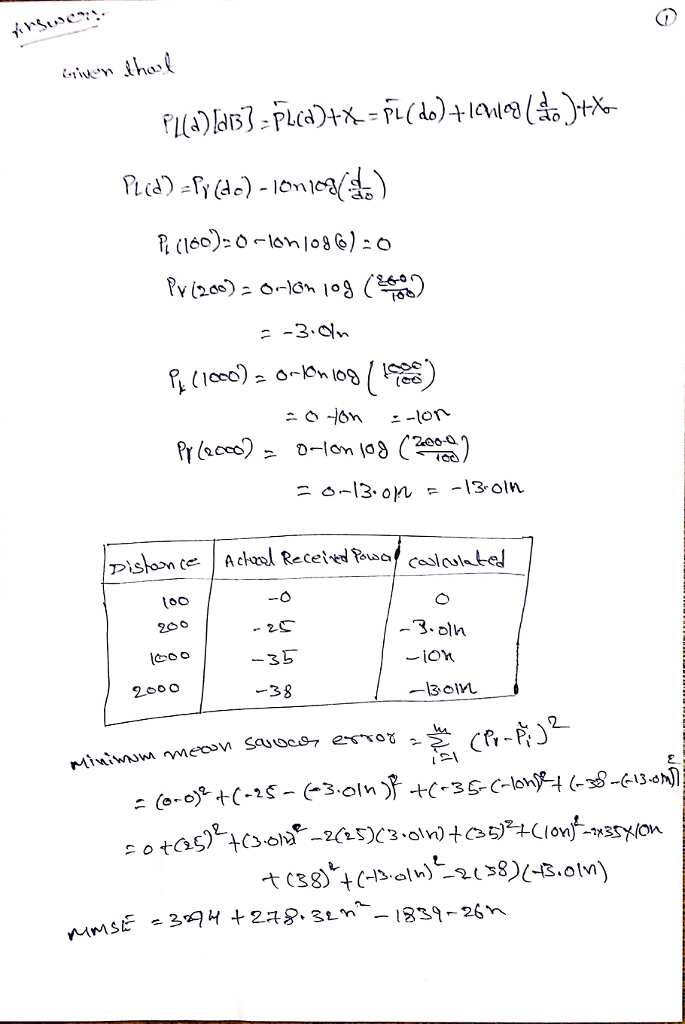 Answer:
①
Given that
PL(d)[dB] = P̄L(d)+Xσ = P̄L(d0)+10nlog(d/d0)+Xσ
PL(d) = Pr(d0) - 10nlog(d/d0)
Pr(100) = 0-10nlog(1) = 0
Pr(200) = 0-10n log (200/100)
= -3.01n
Pr(1000) = 0-10n log (1000/100)
= 0-10n = -10n
Pr(2000) = 0-10n log (2000/100)
= 0-13.01n = -13.01n
Distance Actual Received Power calculated
100 -0 0
200 -25 -3.01n
1000 -35 -10n
2000 -38 -13.01n
Minimum mean square error = Σ i=1 (Pr-P̂i)²
= (0-0)² + (-25-(-3.01n))² + (-35-(-10n))² + (-38-(-13.01n))²
= 0+(25)²+(3.01n)²-2(25)(3.01n)+(35)²+(10n)²-2×35×10n
+(38)²+(-13.01n)²-2(38)(-13.01n)
MMSE = 3294 + 278.32n² - 1839-26n